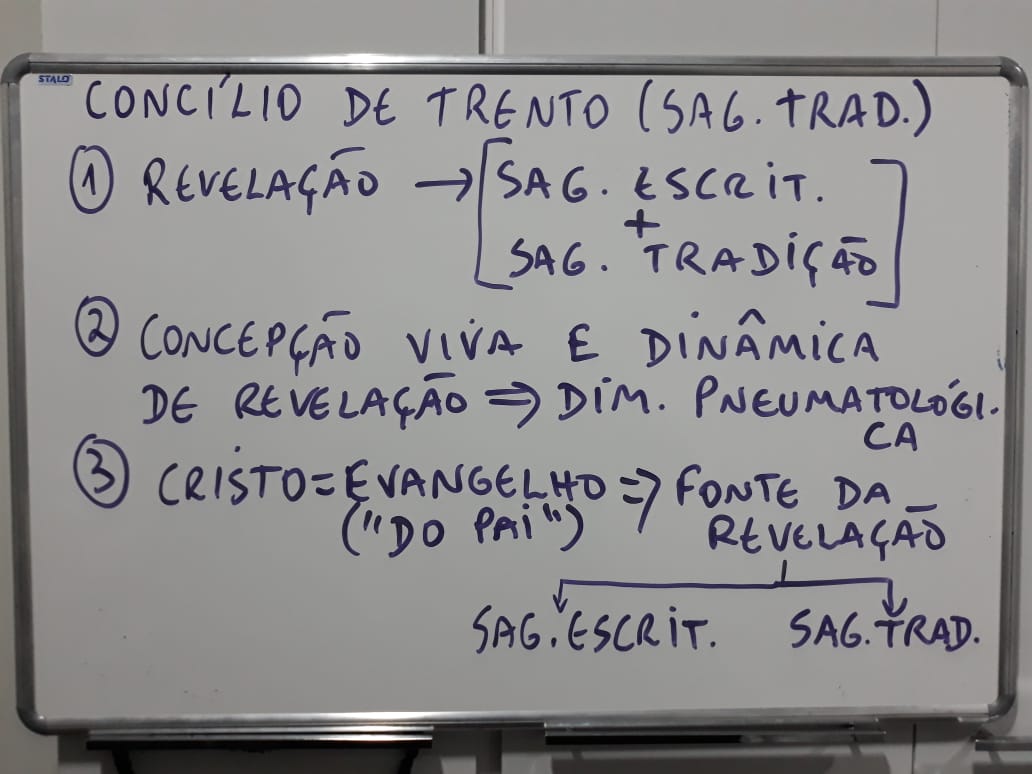 STALO
CONCÍLIO DE TRENTO (SAG. TRAD.)
① REVELAÇÃO → [SAG. ESCRIT.
+
SAG. TRADIÇÃO]
② CONCEPÇÃO VIVA E DINÂMICA
DE REVELAÇÃO ⇒ DIM. PNEUMATOLÓGI.
CA
③ CRISTO = EVANGELHO ⇒ FONTE DA
("DO PAI") REVELAÇÃO
SAG. ESCRIT. SAG. TRAD.